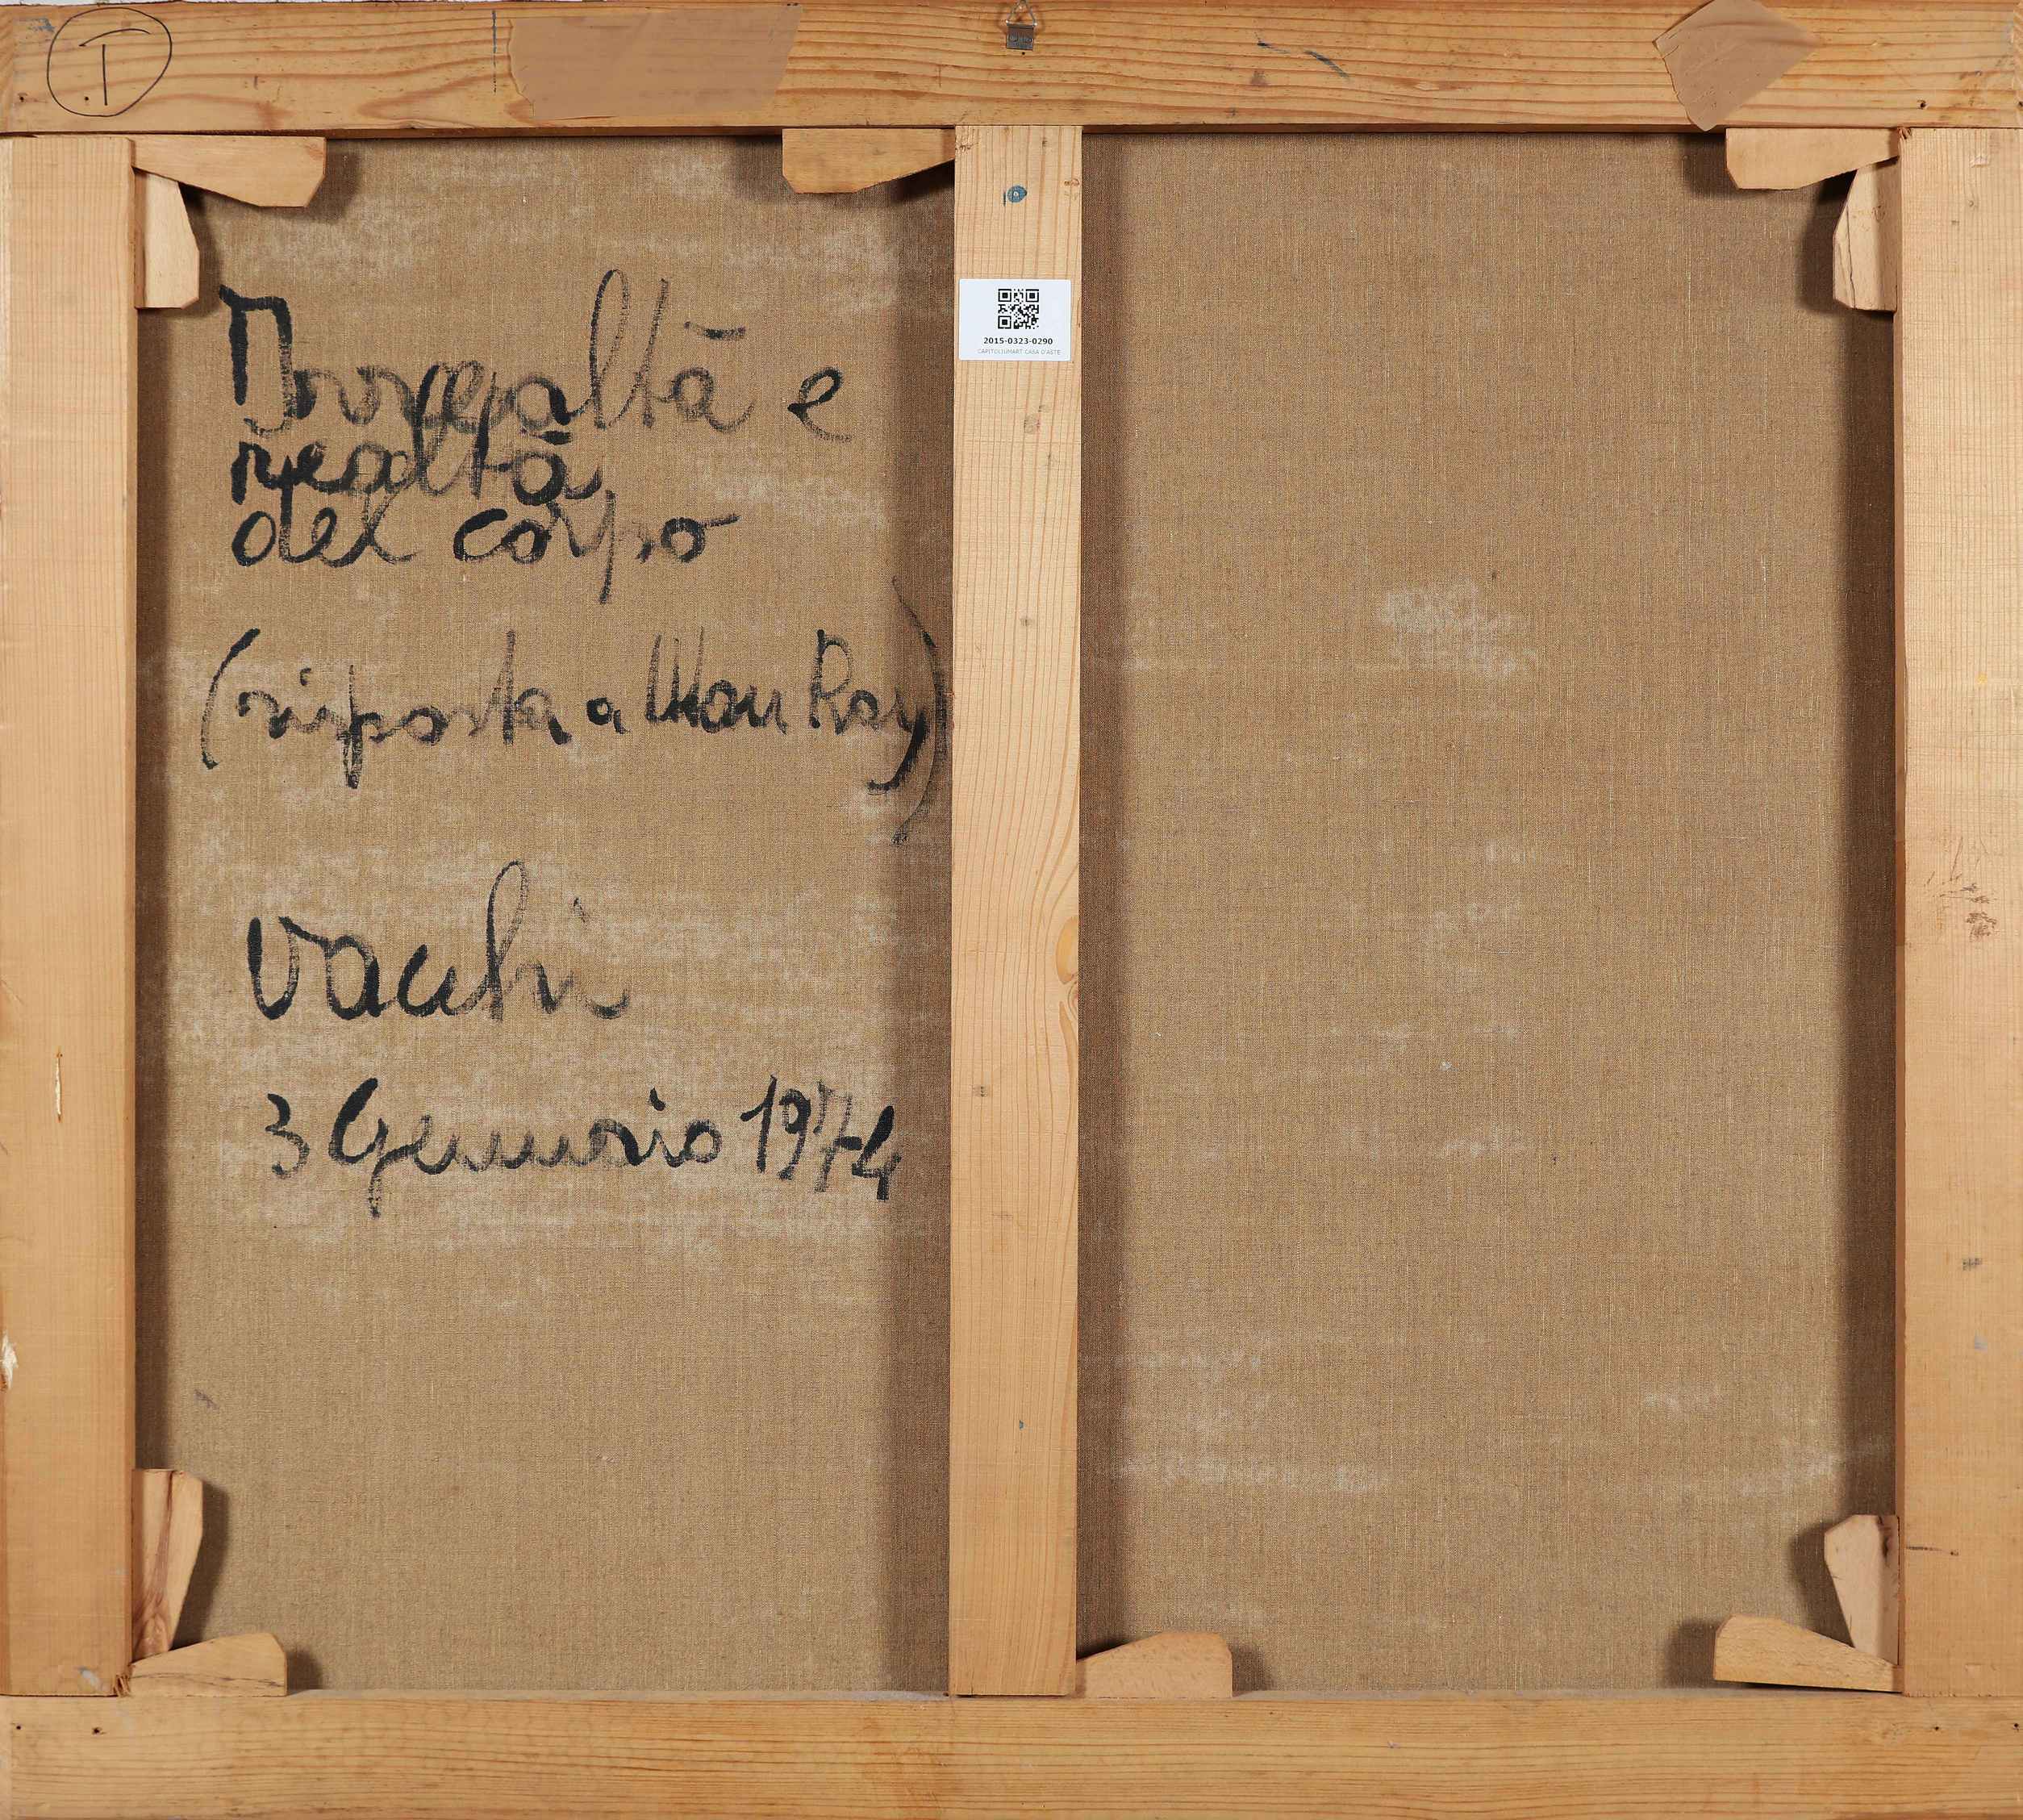 I
Irrealtà e
realtà
del corpo
(risposta a Man Ray)
Vacchi
3 Gennaio 1974
2015-0323-0290
CAPITOLIUMART CASA D'ASTE